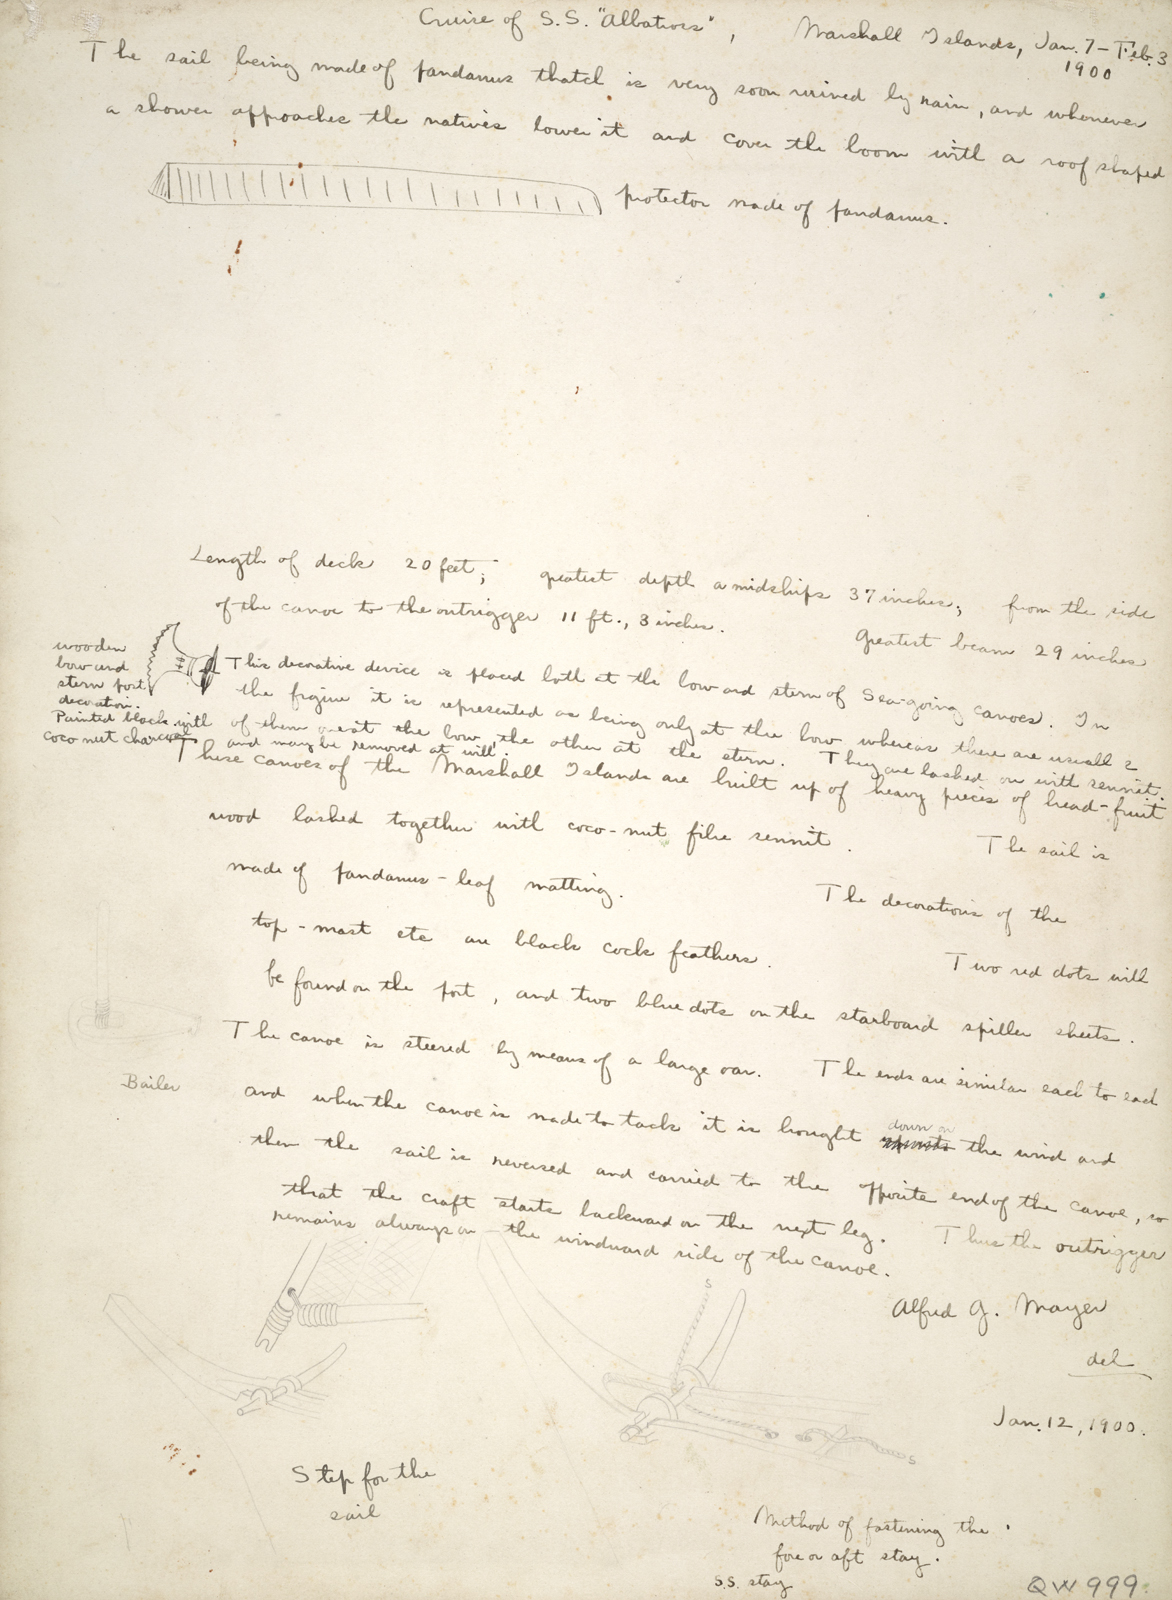 Cruise of S.S. "Albatross", Marshall Islands, Jan. 7 - Feb. 3
1900
The sail being made of pandanus thatch is very soon ruined by rain, and whenever
a shower approaches the natives lower it and cover the boom with a roof shaped
protector made of pandanus.
Length of deck 20 feet; greatest depth amidships 37 inches; from the side
of the canoe to the outrigger 11 ft., 3 inches. Greatest beam 29 inches
wooden
bow and
stern port
decoration.
Painted black with
coco nut charcoal
This decorative device is placed both at the bow and stern of Sea-going canoes. In
the figure it is represented as being only at the bow whereas there are usually 2
of them one at the bow, the other at the stern. They are lashed on with sennit.
and may be removed at will.
These canoes of the Marshall Islands are built up of heavy pieces of bread-fruit
wood lashed together with coco-nut fibre sennit. The sail is
made of pandanus-leaf matting. The decorations of the
top-mast etc are black cock feathers. Two red dots will
be found on the port, and two blue dots on the starboard spiller sheets.
The canoe is steered by means of a large oar. The ends are similar each to each
Bailer
and when the canoe is made to tack it is bought down on the wind and
then the sail is reversed and carried to the opposite end of the canoe, so
that the craft starts backward on the next leg. Thus the outrigger
remains always on the windward side of the canoe.
S
Alfred G. Mayer
del
Jan. 12, 1900.
S
Step for the
sail
Method of fastening the
fore or aft stay.
S.S. stay
QW999